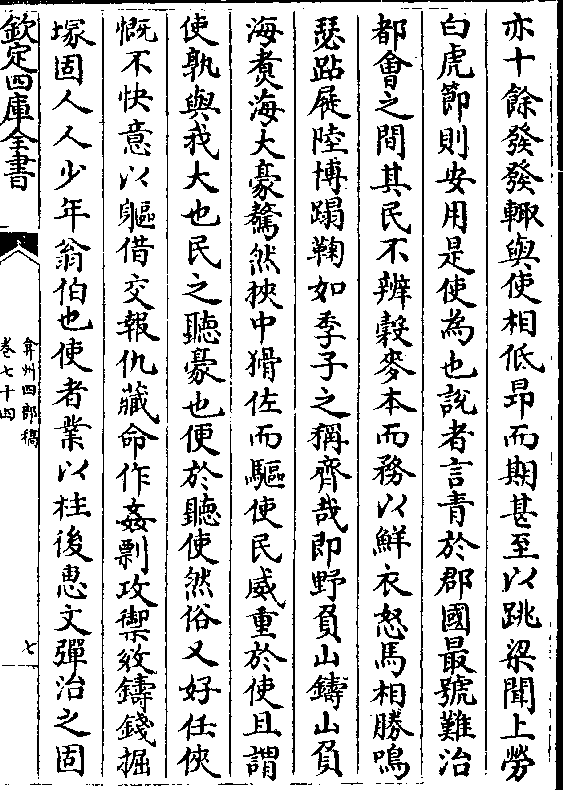 亦十餘發發輙與使相低昻而期甚至以跳梁聞上勞
白虎節則安用是使為也說者言青於郡國最號難治
都會之間其民不辨穀麥本而務以鮮衣怒馬相勝鳴
瑟跕屣陸博蹋鞠如季子之稱齊哉即野負山鑄山負
海煑海大豪驁然挾中猾佐而驅使民威重於使且謂
使孰與我大也民之聽豪也便於聽使然俗又好任俠
慨不快意以軀借交報仇藏命作姦剽攻禦敓鑄錢掘
塚固人人少年翁伯也使者業以柱後惠文彈治之固
欽定四庫全書
弇州四部稿
卷七十四
七